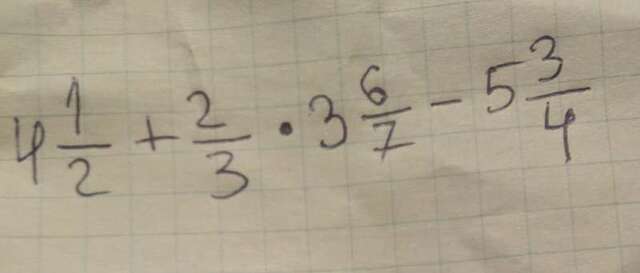 4 1/2 + 2/3 · 3 6/7 - 5 3/4